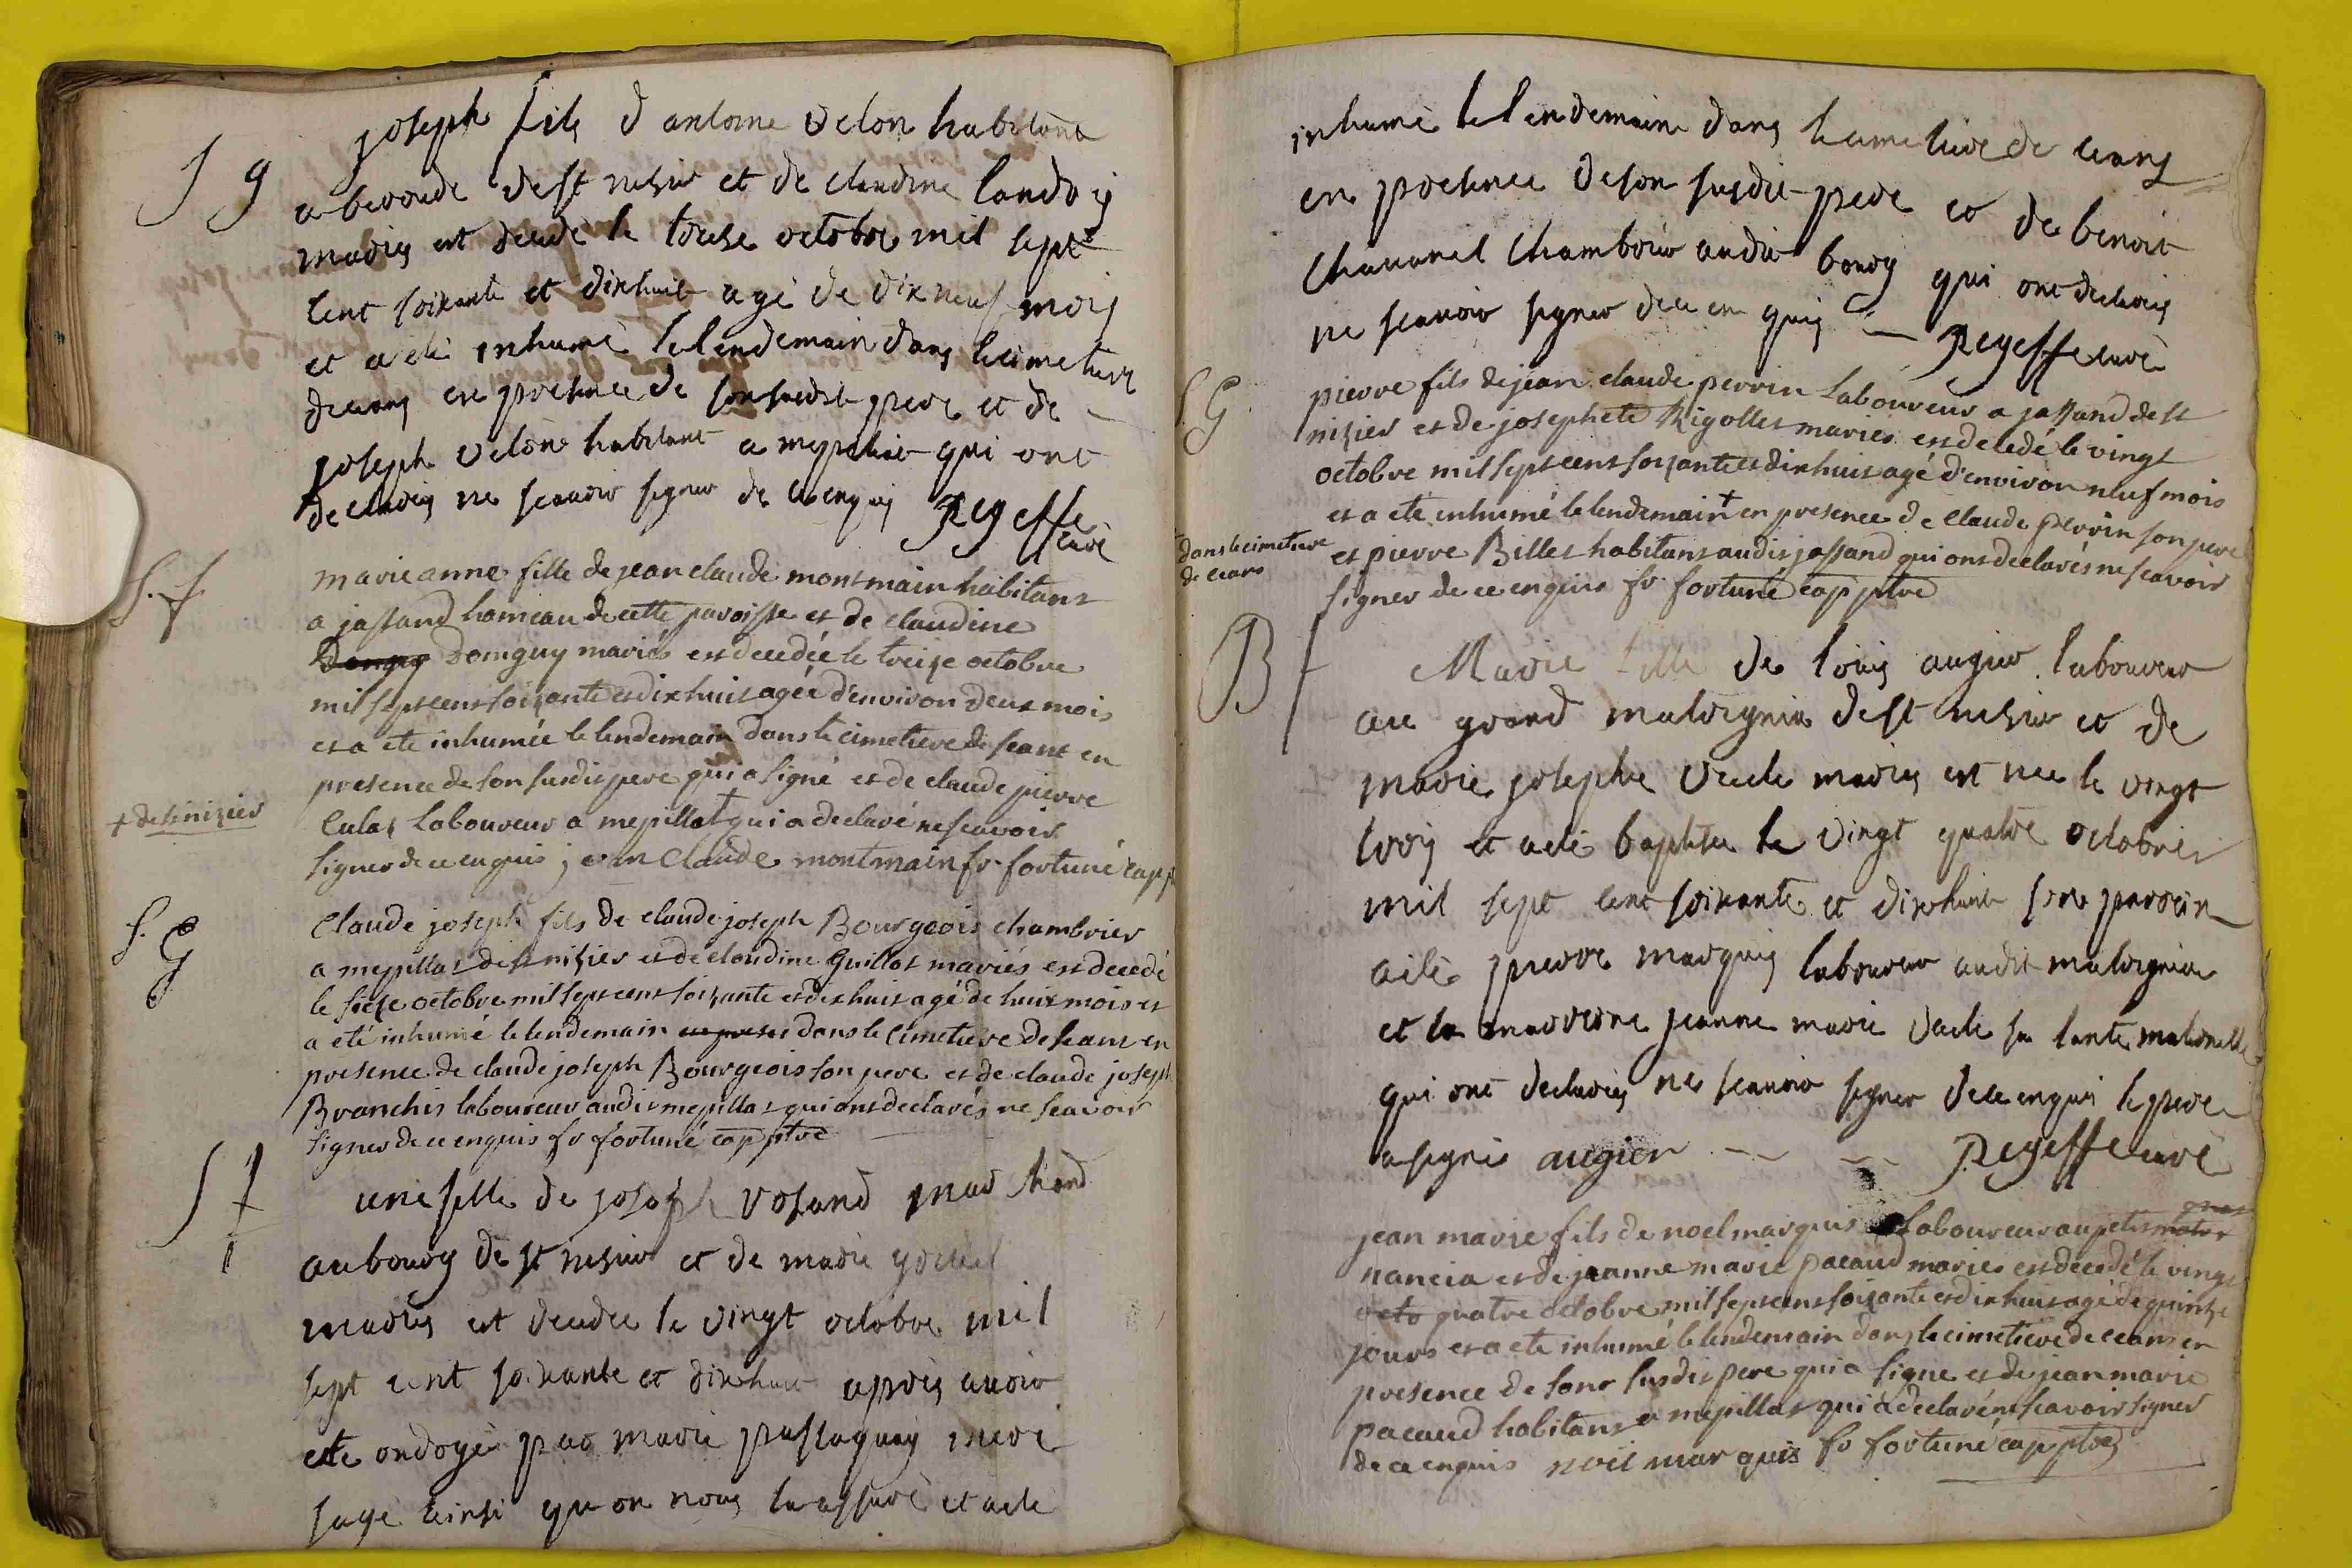 S g
joseph fils d antoine velon habitant
a beroude de st nesier et de claudine landois
mariés est decedé le treise octobre mil sept
cent soixante et dixhuit agé de dix neuf mois
et a eté inhumé le lendemain dans le cimetiere
de ceans en presence de son susdit pere et de
joseph velon habitant a mepillat qui ont
declarés ne scavoir signer de ce enquis Regeffe
curé
S. f
marie anne fille de jean claude montmain habitant
a jassand hameau de cette paroisse et de claudine
Domguy mariés est decedée le treize octobre
mil sept cent soixante et dix huit agée d'environ deux mois
et a ete inhumée le lendemain dans le cimetiere de ceans en
presence de son susdit pere qui a signé et de claude pierre
Culas laboureur a mepillat + qui a declaré ne scavoir
+ de st nizier
signer de ce enquis ; jean Claude montmain fr. fortuné capp
S. G
Claude joseph fils de claude joseph Bourgeois chambrier
a mepillat de st nizier et de claudine Guillot mariés est decedé
le sieze octobre mil sept cent soixante et dix huit agé de huit mois et
a été inhumé le lendemain en presen dans le cimetiere de ceans en
presence de claude joseph Bourgeois son pere et de claude joseph
Branchis laboureur audit mepillat qui ont declarés ne scavoir
signer de ce enquis fr fortuné cap ptre
S f
une fille de joseph rosand marchand
au bourg de st nesier et de marie
mariés est decedee le vingt octobre mil
sept cent soixante et dixhuit aprés avoir
ete ondoyé par marie pastaquay mere
sage ainsi qu on nous la assuré et a eté
inhumé le lendemain dans le cimetiere de ceans
en presence de son susdit pere et de benoit
chavanel chambrier audit bourg qui ont declarés
ne scavoir signer de ce enquis — Regeffe curé
S. G
pierre fils de jean claude perrin laboureur a jassand de st
nizier et de josephete Rigollet mariés est decedé le vingt
octobre mil sept cent soixante et dix huit agé d'environ neuf mois
et a ete inhumé le lendemain + en presence de claude perrin son pere
dans le cimetiere
de ceans
et pierre Billet habitans audit jassand qui ont declarés ne scavoir
signer de ce enquis fr. fortuné cap ptre
B f
Marie fille de louis augier laboureur
au grand matorgnia de st nesier et de
marie josephe vecle mariés est nee le vingt
trois et a eté baptisee le vingt quatre octobre
mil sept cent soixante et dixhuit son parrein
a eté pierre marquis laboureur audit matorgnia
et la marreine jeanne marie vecle sa tante maternelle
qui ont declarés ne scavoir signer de ce enquis le pere
a signé augier — — Regeffe curé
jean marie fils de noel marquis laboureur au petit mator
nancia et de jeanne marie pacaud mariés est decedé le vingt
octo quatre octobre mil sept cent soixante et dix huit agé de quinze
jours et a ete inhumé le lendemain dans le cimetiere de ceans en
presence de son susdit pere qui a signe et de jean marie
pacaud habitant a mepillat qui a declaré ne scavoir signer
de ce enquis noël marquis fr fortuné cap ptre